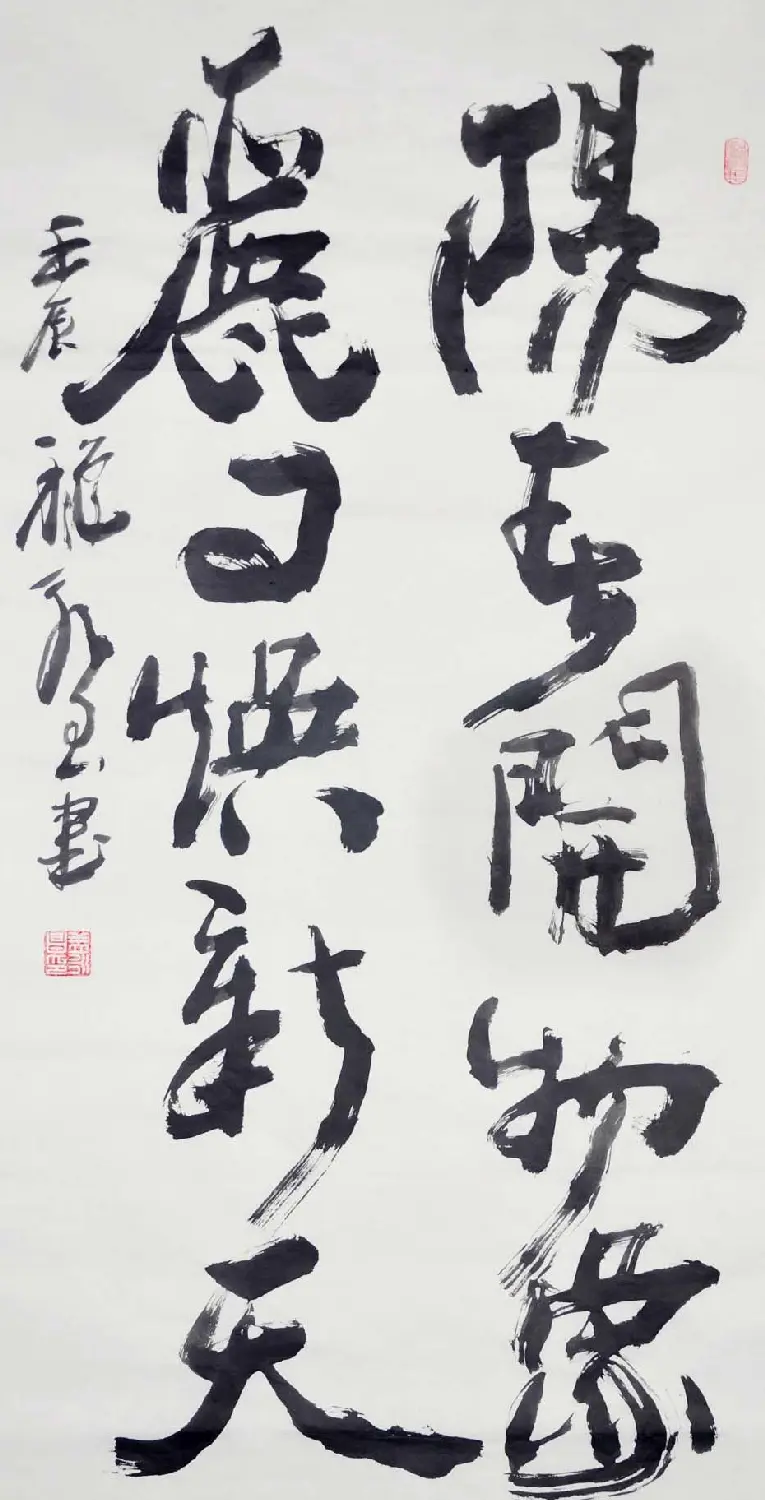 陽春開物象
麗日煥新天
壬辰 龍 書